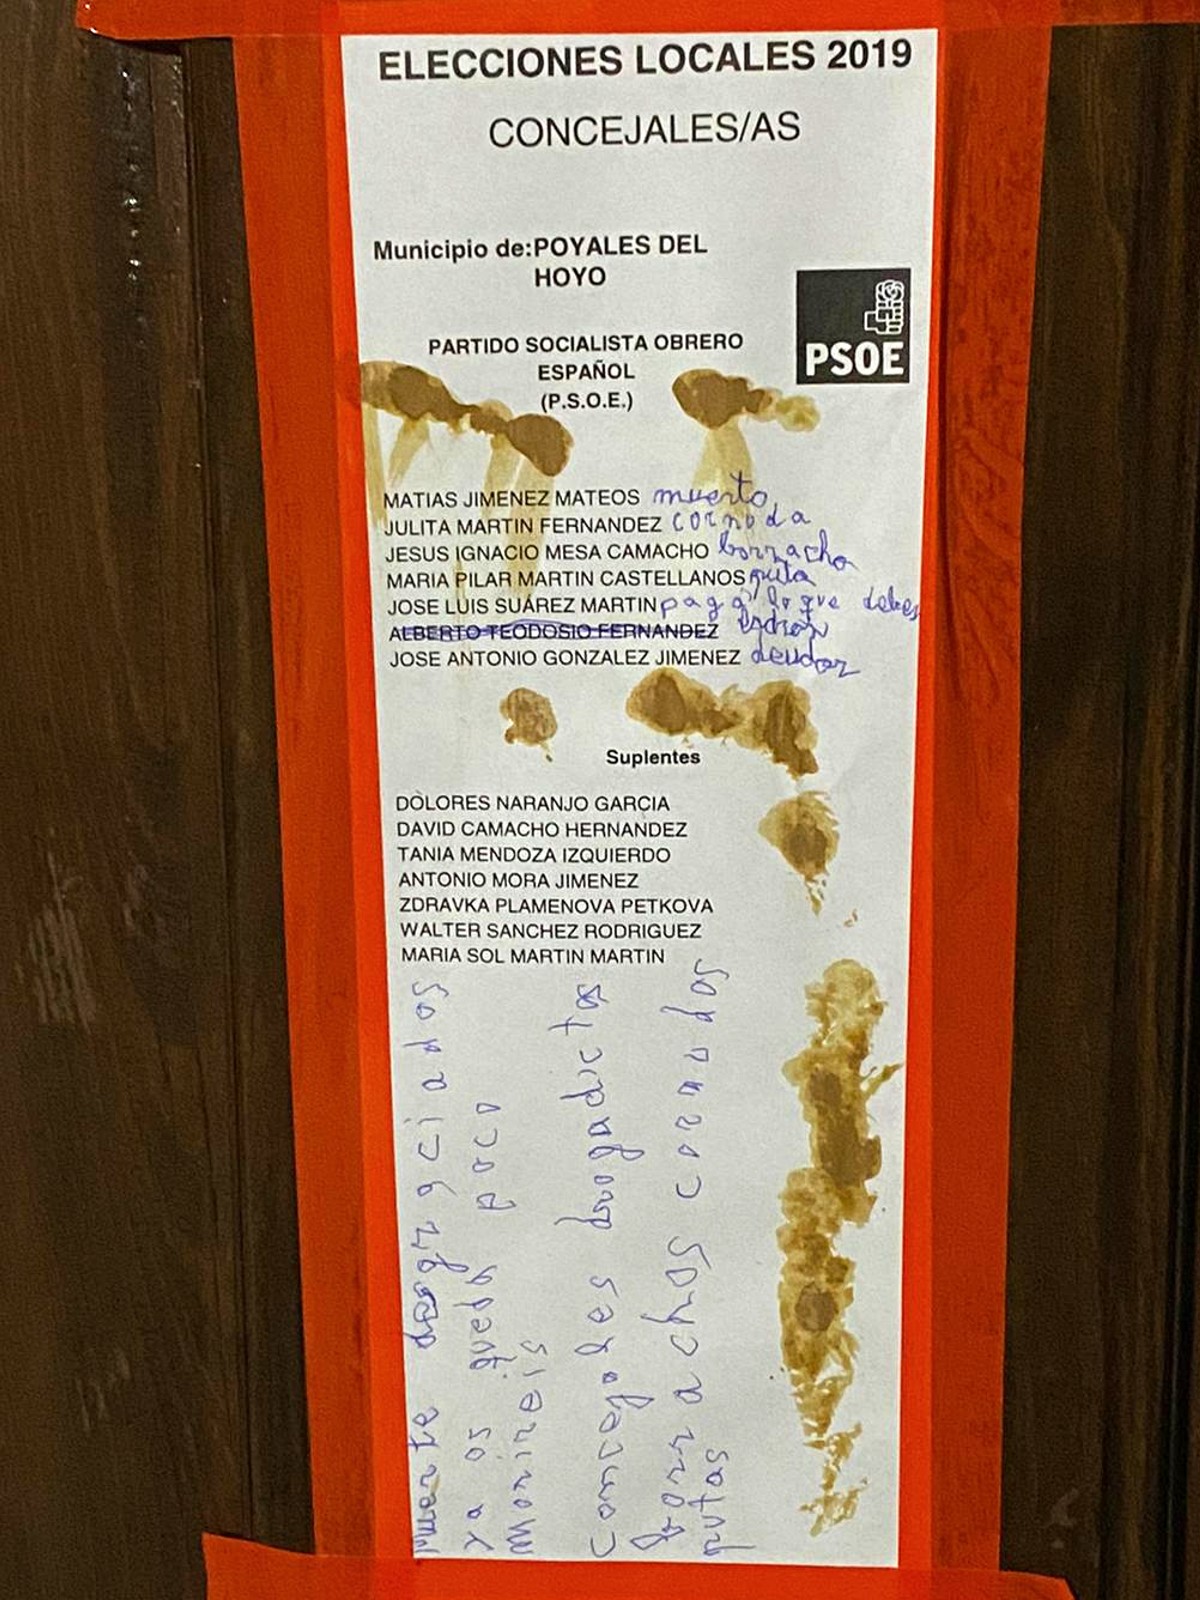 ELECCIONES LOCALES 2019
CONCEJALES/AS
Municipio de:POYALES DEL
HOYO
PARTIDO SOCIALISTA OBRERO
ESPAÑOL
(P.S.O.E.)
PSOE
MATIAS JIMENEZ MATEOS muerto
JULITA MARTIN FERNANDEZ cornuda
JESUS IGNACIO MESA CAMACHO borracho
MARIA PILAR MARTIN CASTELLANOS puta
JOSE LUIS SUÁREZ MARTIN paga lo que debes
ALBERTO TEODOSIO FERNANDEZ ladron
JOSE ANTONIO GONZALEZ JIMENEZ deudor
Suplentes
DOLORES NARANJO GARCIA
DAVID CAMACHO HERNANDEZ
TANIA MENDOZA IZQUIERDO
ANTONIO MORA JIMENEZ
ZDRAVKA PLAMENOVA PETKOVA
WALTER SANCHEZ RODRIGUEZ
MARIA SOL MARTIN MARTIN
muerte desgraciados
ya os queda poco
morireis
concejales drogadictos
borrachos cornudos
putas